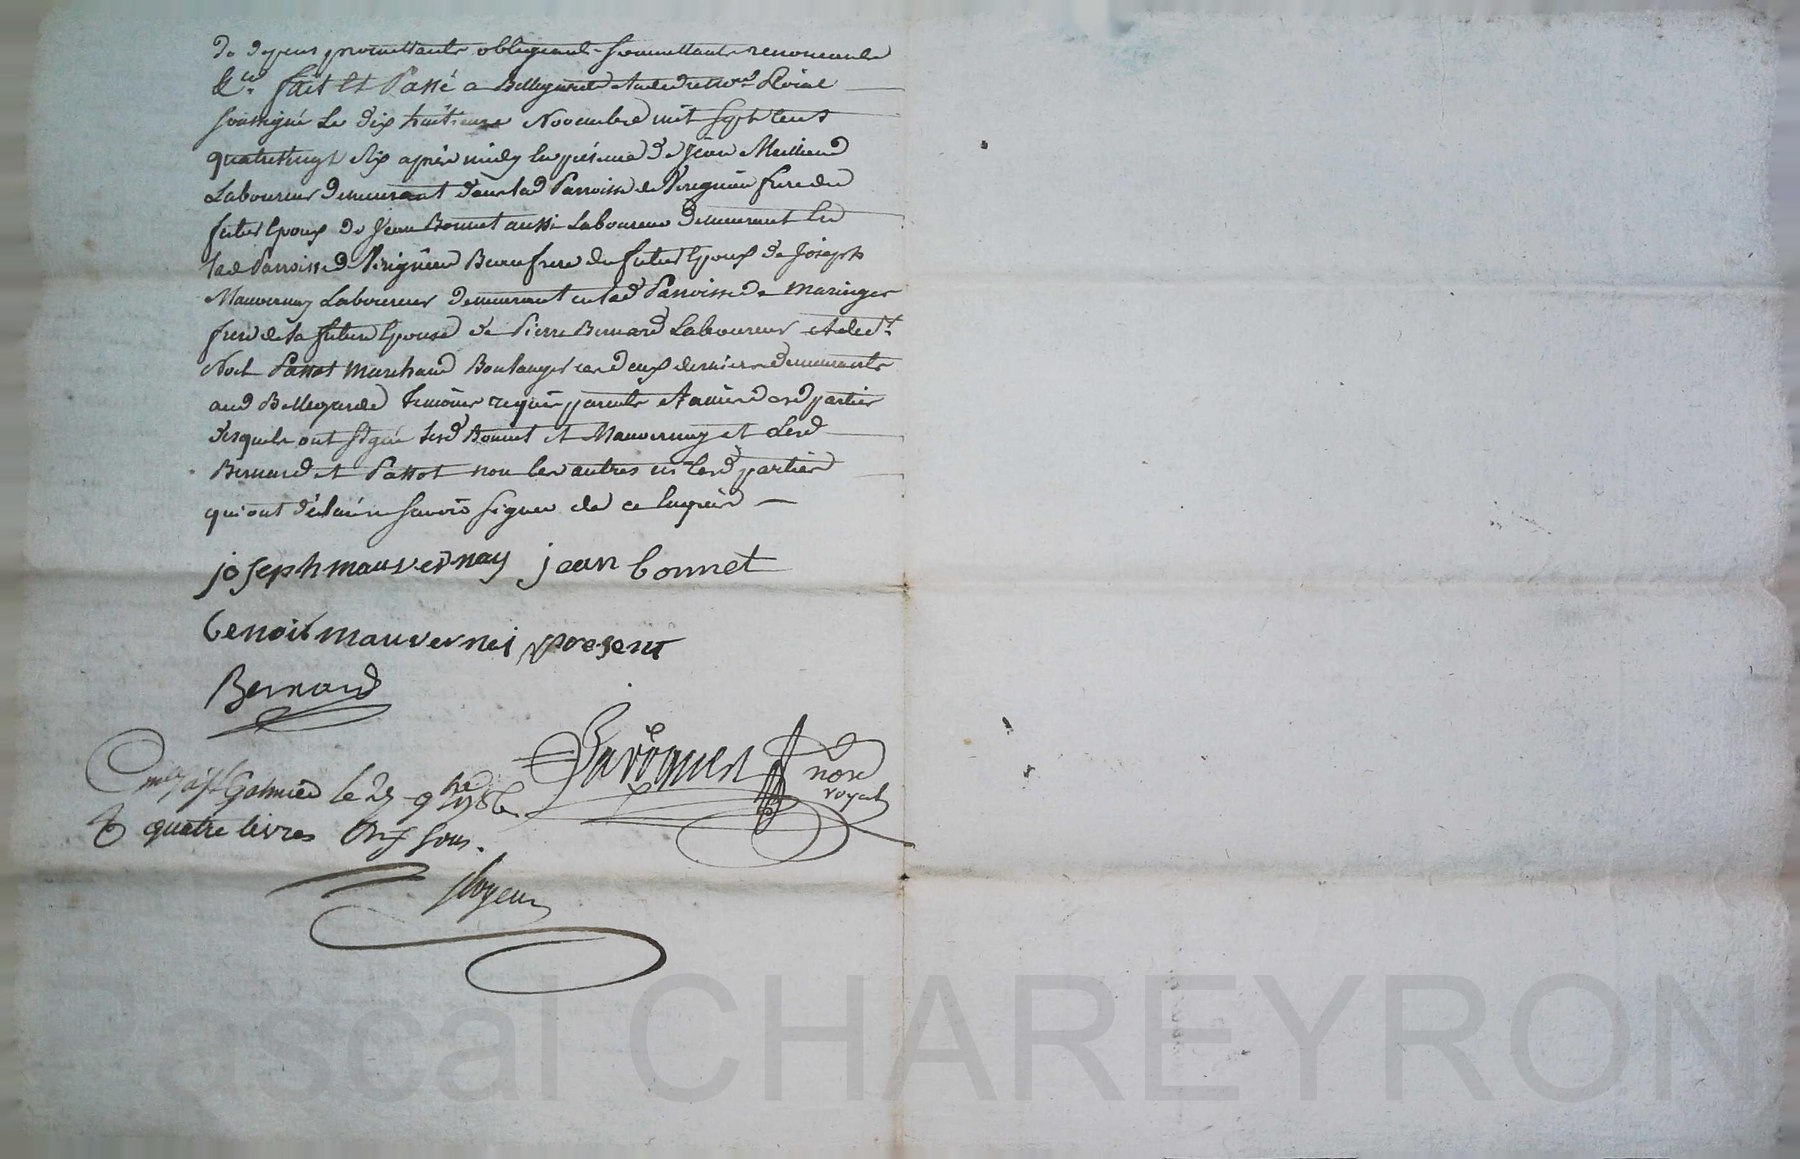 de depens promettants obligeants soumettants renonceants
&.ra fait et Passé a Bellegarde etude du no.re Roial
soussigné Le dix huitieme Novembre mil sept cent
quatrevingt six après midy en presence de Jean Meilland
Laboureur demeurant dans lad Parroisse de Virigneux frere du
futur Epoux de Jean Bonnet aussi Laboureur demeurant en
lad Parroisse de Virigneux Beaufrere du futur Epoux de Joseph
Mauvernay Laboureur demeurant en lad Parroisse de Maringes
frere de la future Epouse de Pierre Bernard Laboureur et de s.r
Noel Passot Marchand Boulanger ces deux derniers demeurants
aud Bellegarde temoins requis parents et amis desd parties
desquels ont signé lesd Bonnet et Mauvernay et Lesd
Bernard et Passot non les autres ni lesd parties
qui ont déclaré ne savoir signer de ce enquis
joseph mauvernay jean bonnet
benoit mauvernei present
Bernard
no.re royal
a st Galmier le 25 9bre 1786
quatre livres dix sous.
Pascal CHAREYRON